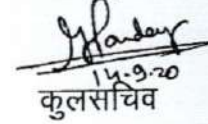 14-9-20
कुलसचिव